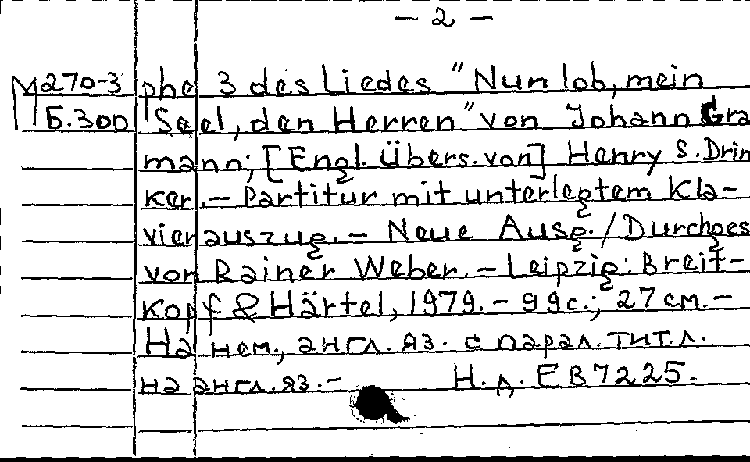 — 2 —
М270-3 phe 3 des Liedes "Nun lob, mein
Б.300 Seel, den Herren" von Johann Gra
mann; [Engl. Übers. von] Henry S. Drin
ker. — Partitur mit unterlegtem Kla-
vierauszug. — Neue Ausg. / Durchges
von Rainer Weber. — Leipzig: Breit-
kopf & Härtel, 1979. — 99 с.; 27 см. —
На нем., англ. яз. с парал. тит. л.
на англ. яз. — Н. д. EB 7225.